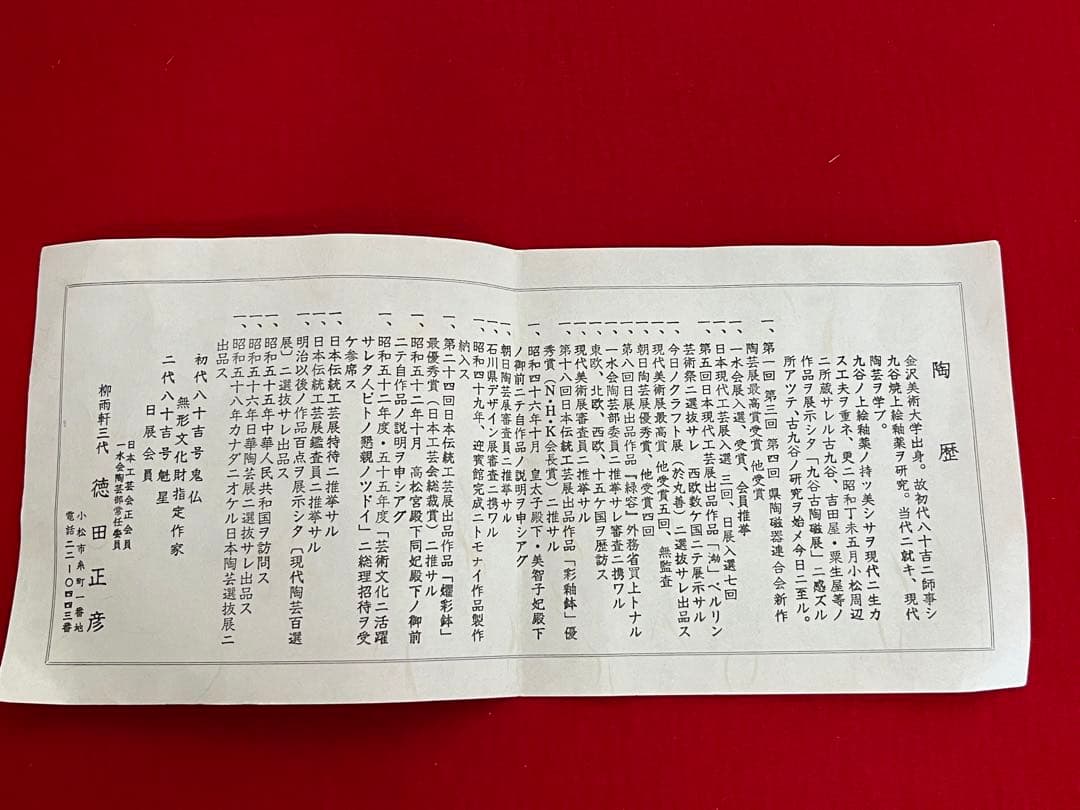 陶歴
金沢美術大学出身。故初代八十吉ニ師事シ
九谷焼上絵釉薬ヲ研究。当代ニ就キ、現代
陶芸ヲ学ブ。
九谷ノ上絵釉薬ノ持ツ美シサヲ現代ニ生カ
ス工夫ヲ重ネ、更ニ昭和丁未五月小松周辺
ニ所蔵サレル古九谷、吉田屋・粟生屋等ノ
作品ヲ展示シタ「九谷古陶磁展」ニ感ズル
所アツテ、古九谷ノ研究ヲ始メ今日ニ至ル。
一、第一回 第三回 第四回 県陶磁器連合会新作
陶芸展最高賞受賞 他受賞
一、一水会展入選、受賞、会員推挙
一、日本現代工芸展入選三回、日展入選七回
一、第五回日本現代工芸展出品作品「渤」ベルリン
芸術祭ニ選抜サレ 西欧数ケ国ニテ展示サル
一、今日ノクラフト展（於丸善）ニ選抜サレ出品ス
一、現代美術展最高賞 他受賞五回、無監査
一、朝日陶芸展優秀賞、他受賞四回
一、第八回日展出品作品『緑容』外務省買上トナル
一、一水会陶芸部委員ニ推挙サレ審査ニ携ワル
一、東欧、北欧、西欧、十五ケ国ヲ歴訪ス
一、現代美術展審査員ニ推挙サル
一、第十八回日本伝統工芸展出品作品「彩釉鉢」優
秀賞（N・H・K会長賞）ニ推サル
一、昭和四十六年十月 皇太子殿下・美智子妃殿下
ノ御前ニテ自作品ノ説明ヲ申シアグ
一、朝日陶芸展審査員ニ推挙サル
一、石川県デザイン展審査ニ携ワル
一、昭和四十九年、迎賓館完成ニトモナイ作品製作
納入ス
一、第二十四回日本伝統工芸展出品作品「燿彩鉢」
最優秀賞（日本工芸会総裁賞）ニ推サル
一、昭和五十二年十月 高松宮殿下同妃殿下ノ御前
ニテ自作品ノ説明ヲ申シアグ
一、昭和五十二年度・五十五年度「芸術文化ニ活躍
サレタ人ビトノ懇親ノツドイ」ニ総理招待ヲ受
ケ参席ス
一、日本伝統工芸展特待ニ推挙サル
一、日本伝統工芸展鑑査員ニ推挙サル
一、明治以後ノ作品百点ヲ展示シタ〔現代陶芸百選
展〕ニ選抜サレ出品ス
一、昭和五十五年中華人民共和国ヲ訪問ス
一、昭和五十六年日華陶芸展ニ選抜サレ出品ス
一、昭和五十八年カナダニオケル日本陶芸選抜展ニ
出品ス
初代 八十吉 号 鬼仏
無形文化財指定作家
二代 八十吉 号 魁星
日展会員
日本工芸会正会員
一水会陶芸部常任委員
柳雨軒三代 徳田正彦
小松市糸町一番地
電話二二-〇四四三番